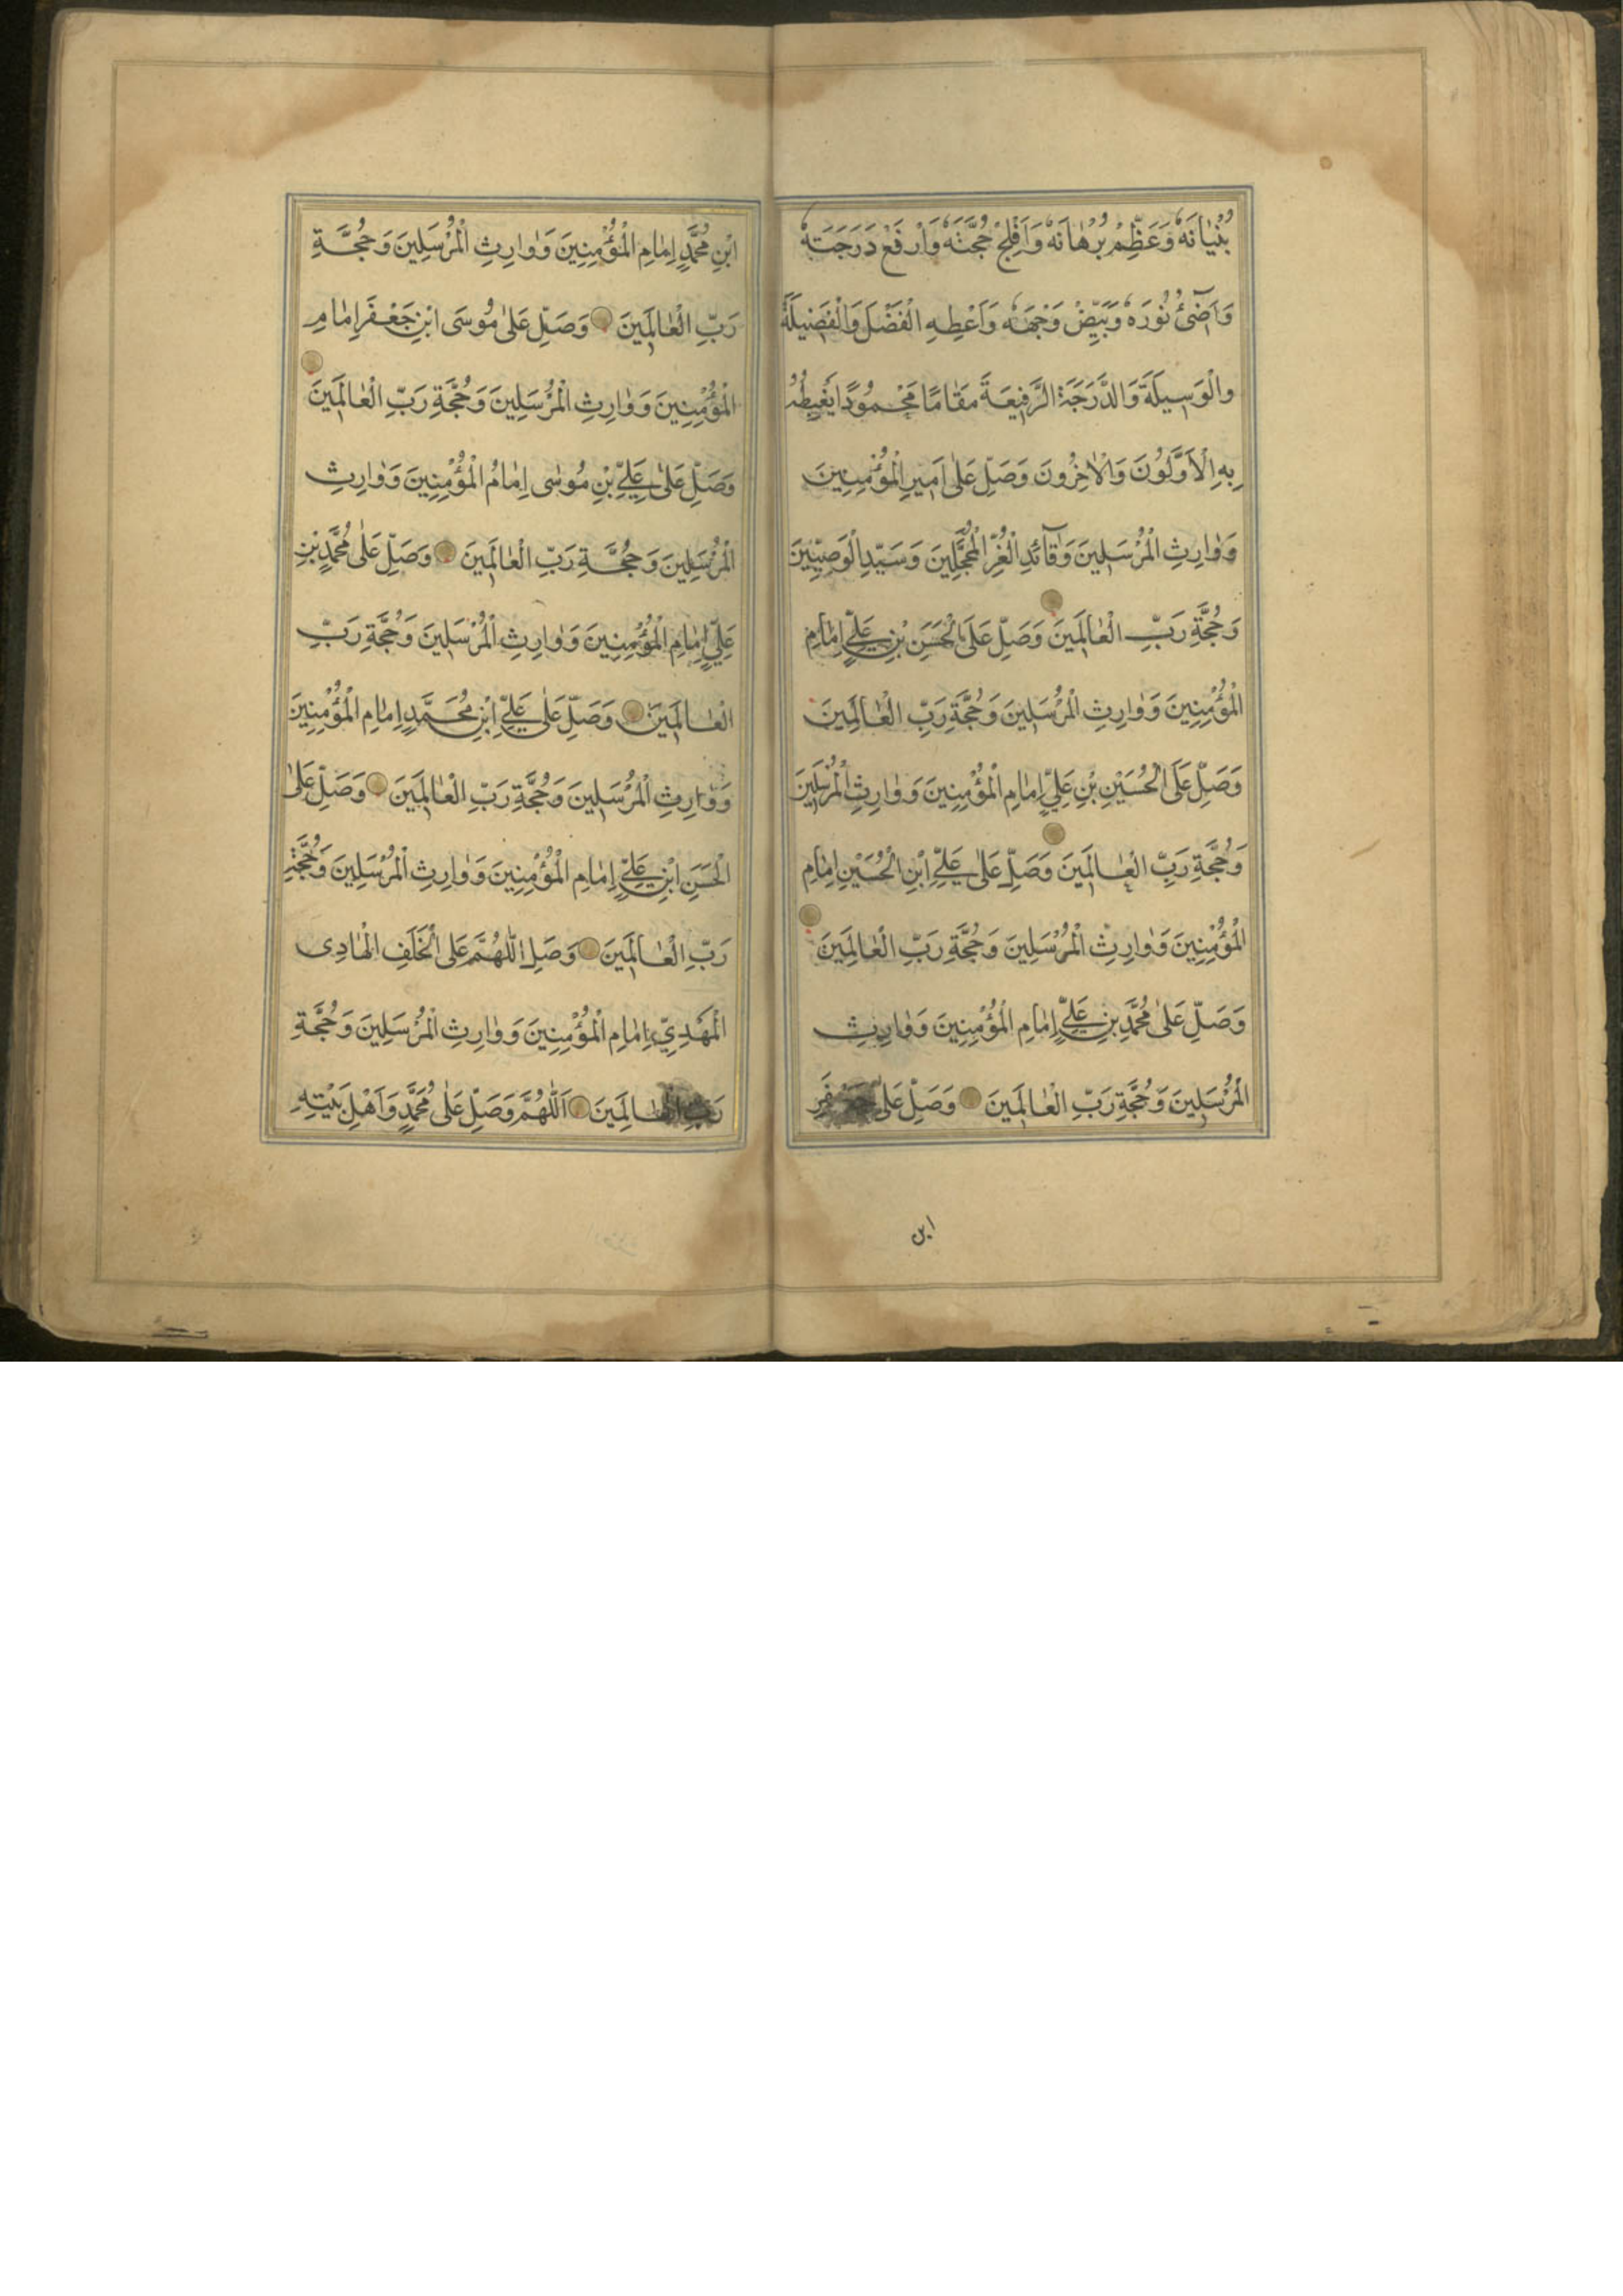 بُنْيٰانَهُ وَعَظِّمْ بُرْهٰانَهُ وَاَفْلِجْ حُجَّتَهُ وَارْفَعْ دَرَجَتَهُ
وَاَضِئْ نُورَهُ وَبَيِّضْ وَجْهَهُ وَاَعْطِهِ الْفَضْلَ وَالْفَضِيلَةَ
وَالْوَسِيلَةَ وَالدَّرَجَةَ الرَّفِيعَةَ مَقٰامًا مَحْمُودًا يَغْبِطُهُ
بِهِ الْاَوَّلُونَ وَالْاٰخِرُونَ وَصَلِّ عَلٰى اَمِيرِ الْمُؤْمِنِينَ
وَوٰارِثِ الْمُرْسَلِينَ وَقٰآئِدِ الْغُرِّ الْمُحَجَّلِينَ وَسَيِّدِ الْوَصِيِّينَ
وَحُجَّةِ رَبِّ الْعٰالَمِينَ وَصَلِّ عَلَى الْحَسَنِ بْنِ عَلِيٍّ اِمٰامِ
الْمُؤْمِنِينَ وَوٰارِثِ الْمُرْسَلِينَ وَحُجَّةِ رَبِّ الْعٰالَمِينَ
وَصَلِّ عَلَى الْحُسَيْنِ بْنِ عَلِيٍّ اِمٰامِ الْمُؤْمِنِينَ وَوٰارِثِ الْمُرْسَلِينَ
وَحُجَّةِ رَبِّ الْعٰالَمِينَ وَصَلِّ عَلٰى عَلِيِّ ابْنِ الْحُسَيْنِ اِمٰامِ
الْمُؤْمِنِينَ وَوٰارِثِ الْمُرْسَلِينَ وَحُجَّةِ رَبِّ الْعٰالَمِينَ
وَصَلِّ عَلٰى مُحَمَّدِ بْنِ عَلِيٍّ اِمٰامِ الْمُؤْمِنِينَ وَوٰارِثِ
الْمُرْسَلِينَ وَحُجَّةِ رَبِّ الْعٰالَمِينَ وَصَلِّ عَلٰى جَعْفَرِ
ابن
ابْنِ مُحَمَّدٍ اِمٰامِ الْمُؤْمِنِينَ وَوٰارِثِ الْمُرْسَلِينَ وَحُجَّةِ
رَبِّ الْعٰالَمِينَ وَصَلِّ عَلٰى مُوسَى ابْنِ جَعْفَرٍ اِمٰامِ
الْمُؤْمِنِينَ وَوٰارِثِ الْمُرْسَلِينَ وَحُجَّةِ رَبِّ الْعٰالَمِينَ
وَصَلِّ عَلٰى عَلِيِّ بْنِ مُوسٰى اِمٰامُ الْمُؤْمِنِينَ وَوٰارِثِ
الْمُرْسَلِينَ وَحُجَّةِ رَبِّ الْعٰالَمِينَ وَصَلِّ عَلٰى مُحَمَّدِ بْنِ
عَلِيٍّ اِمٰامِ الْمُؤْمِنِينَ وَوٰارِثِ الْمُرْسَلِينَ وَحُجَّةِ رَبِّ
الْعٰالَمِينَ وَصَلِّ عَلٰى عَلِيِّ ابْنِ مُحَمَّدٍ اِمٰامِ الْمُؤْمِنِينَ
وَوٰارِثِ الْمُرْسَلِينَ وَحُجَّةِ رَبِّ الْعٰالَمِينَ وَصَلِّ عَلَى
الْحَسَنِ ابْنِ عَلِيٍّ اِمٰامِ الْمُؤْمِنِينَ وَوٰارِثِ الْمُرْسَلِينَ وَحُجَّةِ
رَبِّ الْعٰالَمِينَ وَصَلِّ اللّٰهُمَّ عَلَى الْخَلَفِ الْهٰادِى
الْمَهْدِيِّ اِمٰامِ الْمُؤْمِنِينَ وَوٰارِثِ الْمُرْسَلِينَ وَحُجَّةِ
رَبِّ الْعٰالَمِينَ اَللّٰهُمَّ وَصَلِّ عَلٰى مُحَمَّدٍ وَاَهْلِ بَيْتِهِ